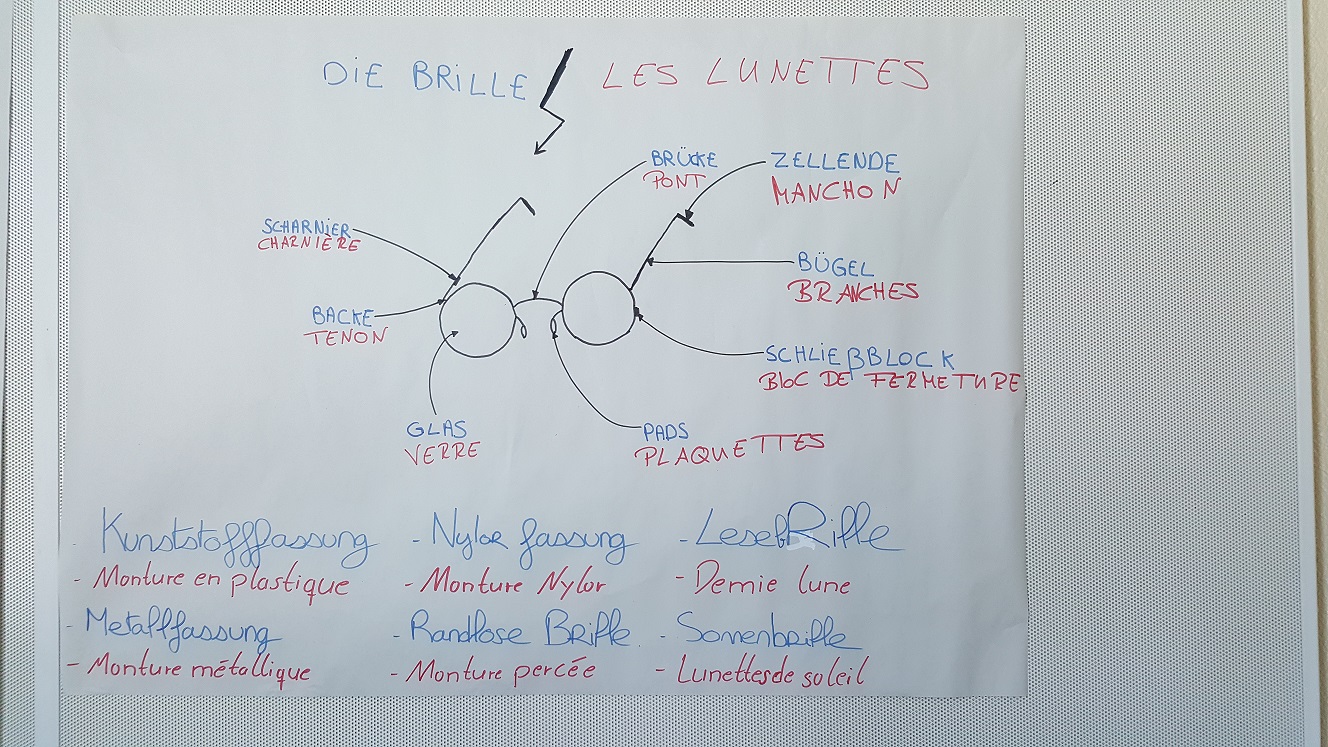 DiE BRiLLE / LES LUNETTES
BRÜCKE
PONT
ZELLENDE
MANCHON
SCHARNiER
CHARNIÈRE
BÜGEL
BRANCHES
BACKE
TENON
SCHLIEßBLOCK
BloC DE FERMETURE
GLAS
VERRE
PADS
PLAQUETTES
- Kunststofffassung - Nylor fassung - LesebRille
- Monture en plastique - Monture Nylor - Demie lune
- Metallfassung - Randlose Brille - Sonnenbrille
- Monture métallique - Monture percée - Lunettes de soleil